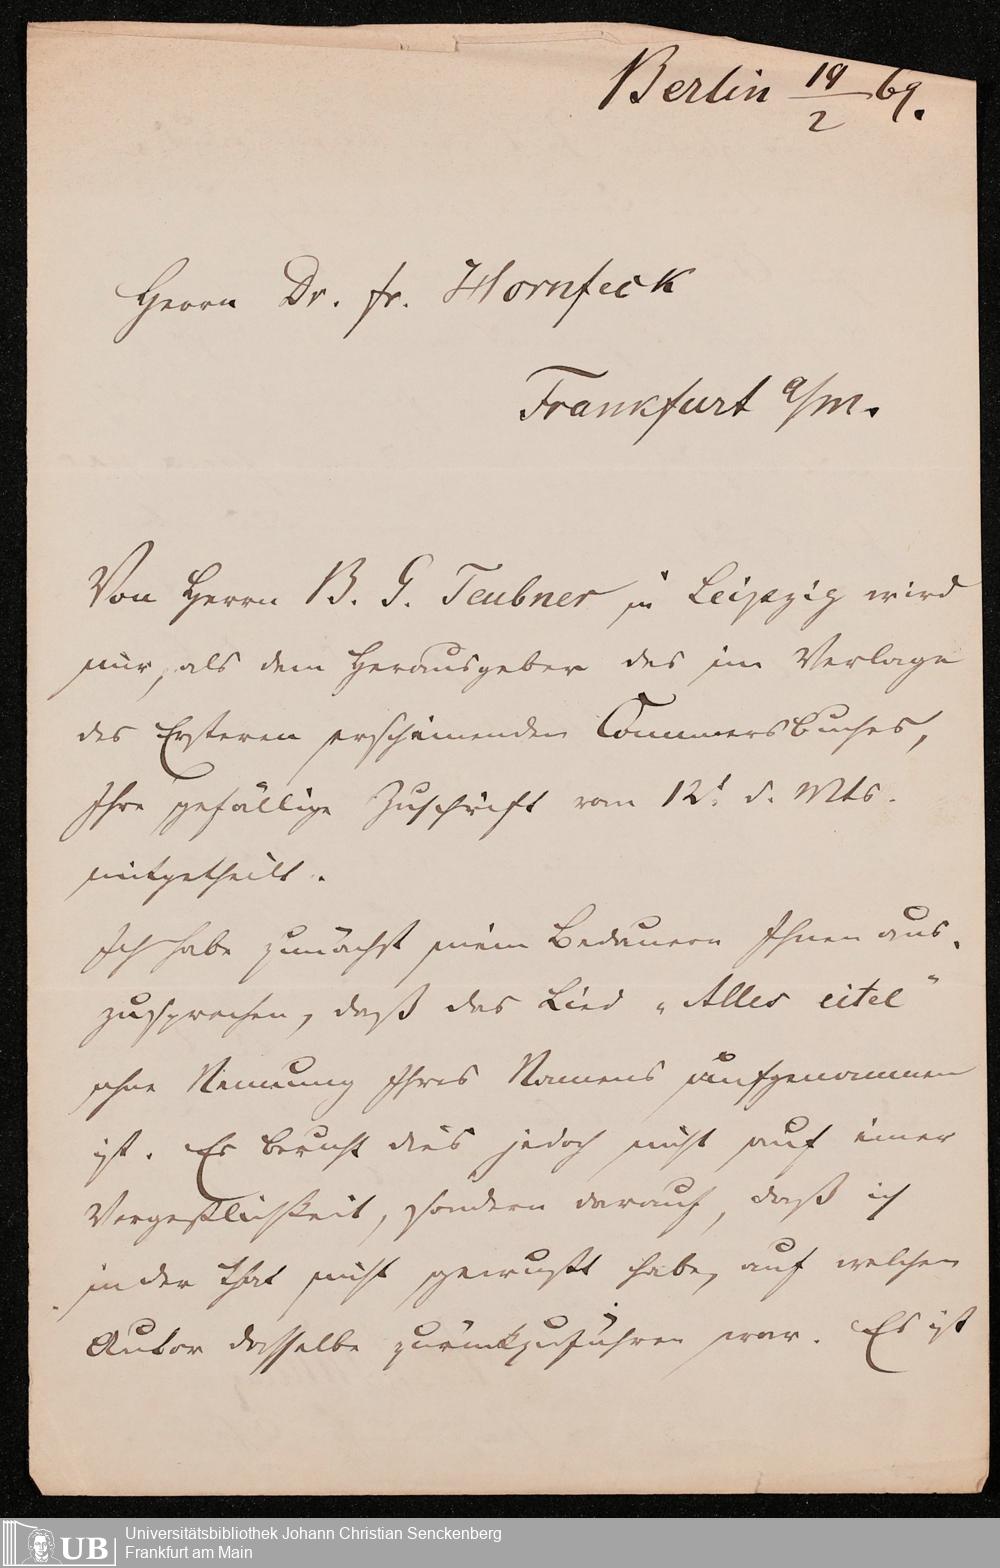 Berlin 19/2 69.
Herrn Dr. Fr. Hornfeck
Frankfurt a/M.
Von Herrn B. G. Teubner in Leipzig wird
mir, als dem Herausgeber des im Verlage
des Ersteren erscheinenden Commersbuches,
Ihre gefällige Zuschrift vom 12t d. Mts.
mitgetheilt.
Ich habe zunächst mein Bedauern Ihnen aus-
zusprechen, daß das Lied „Alles eitel"
ohne Nennung Ihres Namens aufgenommen
ist. Es beruht dies jedoch nicht auf einer
Vergeßlichkeit, sondern darauf, daß ich
in der That nicht gewußt habe, auf welchen
Autor dasselbe zurückzuführen war. Es ist
UB
Universitätsbibliothek Johann Christian Senckenberg
Frankfurt am Main